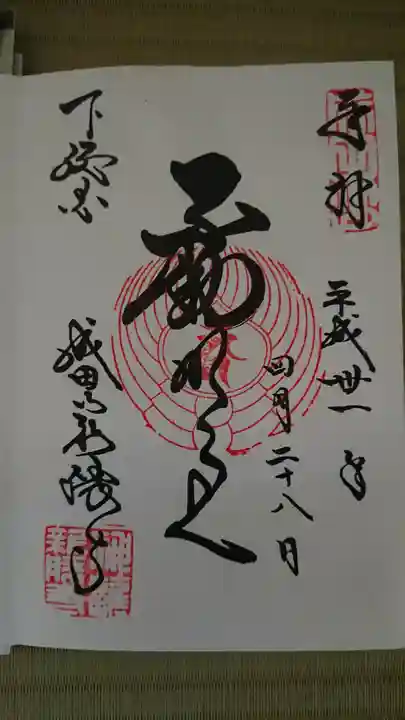 奉拝
平成卅一年
四月二十八日
不動明王
下総国
成田山新勝寺